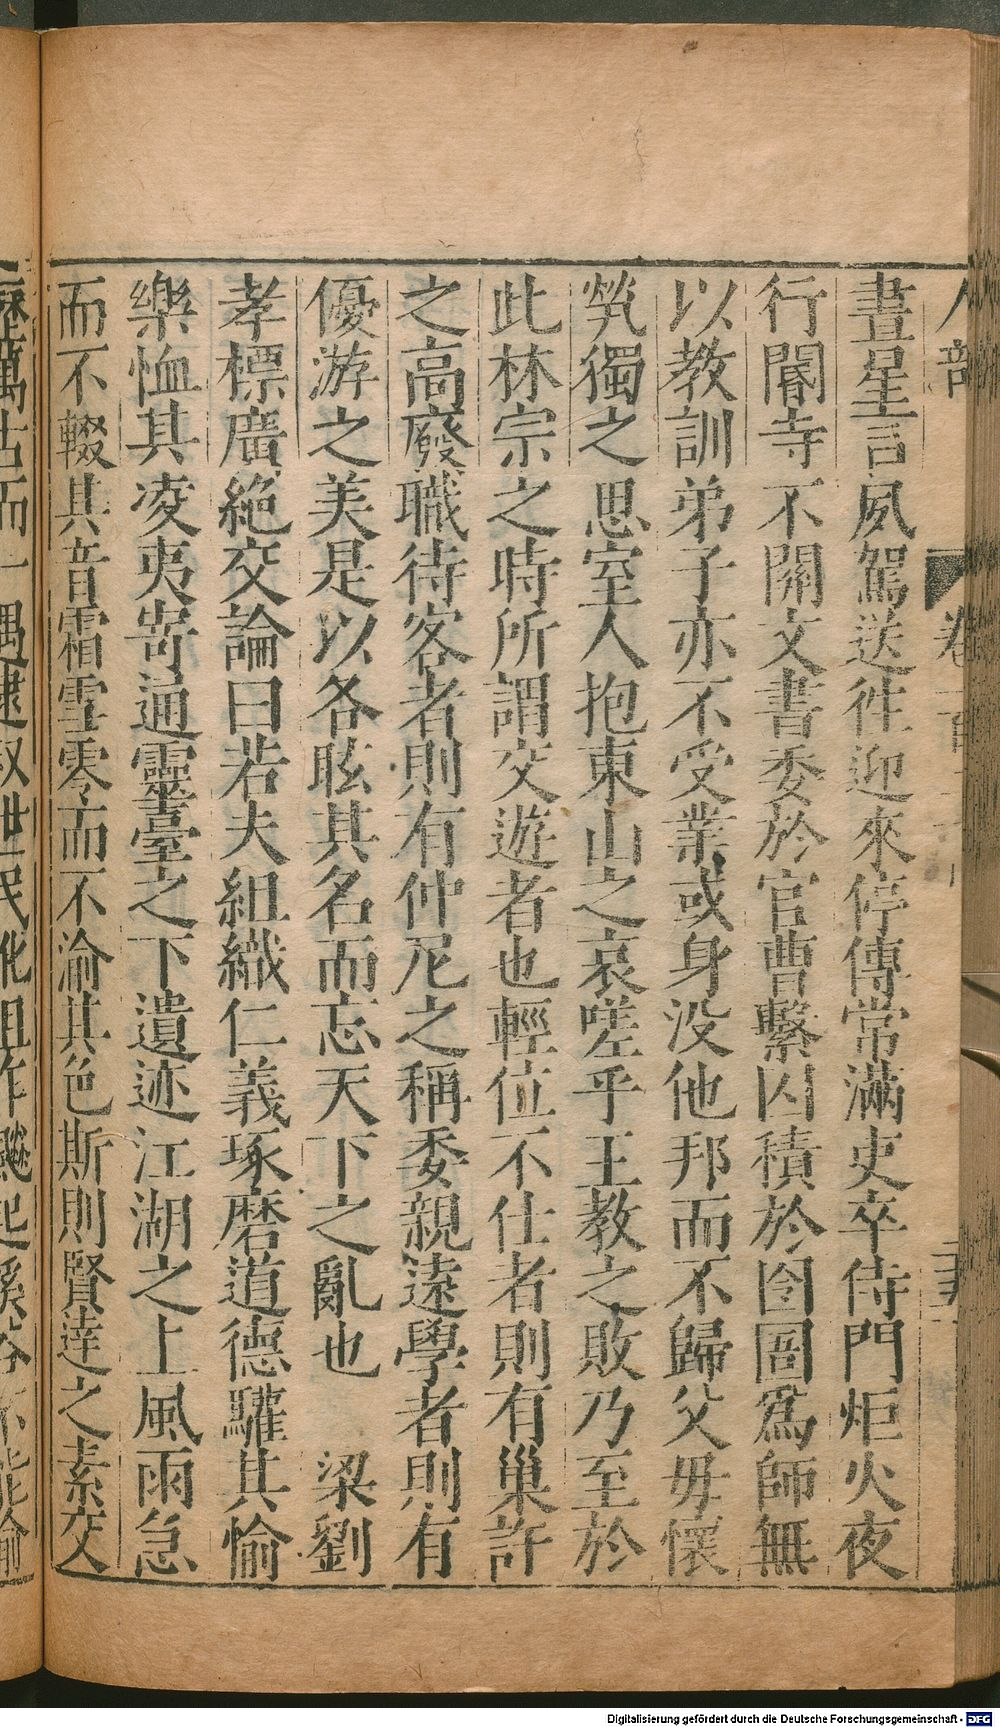 人部
晝星言夙駕送徃迎來停傳常滿吏卒侍門炬火夜
行閽寺不關文書委於官曹繫囚積於囹圄爲師無
以教訓弟子亦不受業或身没他邦而不歸父母懷
煢獨之思室人抱東山之哀嗟乎王教之敗乃至於
此林宗之時所謂交遊者也輕位不仕者則有巢許
之高廢職待客者則有仲尼之稱委親遠學者則有
優游之美是以各眩其名而忘天下之亂也 梁劉
孝標廣絶交論曰若夫組織仁義琢磨道德驩其愉
樂恤其凌夷寄通靈臺之下遺迹江湖之上風雨急
而不輟其音霜雪零而不渝其色斯則賢達之素交
歷萬古而一遇逮叔世民化狙詐飈起谿谷不能踰
Digitalisierung gefördert durch die Deutsche Forschungsgemeinschaft - DFG